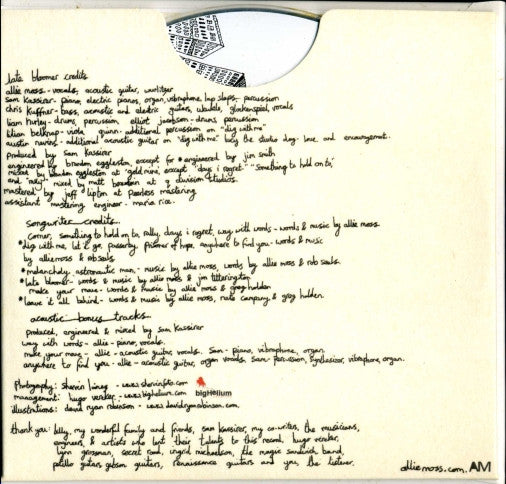 late bloomer credits
allie moss - vocals, acoustic guitar, wurlitzer
sam kassirer - piano, electric pianos, organ, vibraphone, lap slaps, percussion
chris kuffner - bass, acoustic and electric guitars, ukulele, glockenspiel, vocals
liam hurley - drums, percussion elliot jacobson - drums, percussion
lilian belknap - viola quinn - additional percussion on "dig with me"
austin nevins - additional acoustic guitar on "dig with me" the studio dog - love and encouragement.
produced by sam kassirer
engineered by brandon eggleston, except for * engineered by jim smith
mixed by brandon eggleston at "gold mine, except "days i regret" "something to hold on to,"
and "rally," mixed by matt at q division studios.
mastered by jeff lipton at peerless mastering
assistant mastering engineer - maria rice.
songwriter credits
corner, something to hold on to, rally, days i regret, way with words - words & music by allie moss
* dig with me, let it go, passerby, prisoner of hope, anywhere to find you - words & music
by allie moss & rob sauls
* melancholy astronautic man - music by allie moss, words by allie moss & rob sauls.
* late bloomer - words & music by allie moss & jim titterington
make your move - words & music by allie moss & greg holden
* leave it all behind - words & music by allie moss, nate campany & greg holden.
acoustic bonus tracks
produced, engineered & mixed by sam kassirer
way with words - allie - piano, vocals.
make your move - allie - acoustic guitar, vocals. sam - piano, vibraphone, organ.
anywhere to find you - allie - acoustic guitar, organ vocals. sam - percussion, synthesizer, vibraphone, organ.
photography: shervin lainez - www.shervinfoto.com
management: hugo vereker - www.bighelium.com bigHelium
illustrations: david ryan robinson - www.davidryanrobinson.com.
thank you: billy, my wonderful family and friends, sam kassirer, my co-writers, the musicians,
engineers, & artists who lent their talents to this record, hugo vereker,
lynn grossman, secret road, ingrid michaelson, the magic sandwich band,
guitars, gibson guitars, renaissance guitars and you, the listener.
alliemoss.com. AM